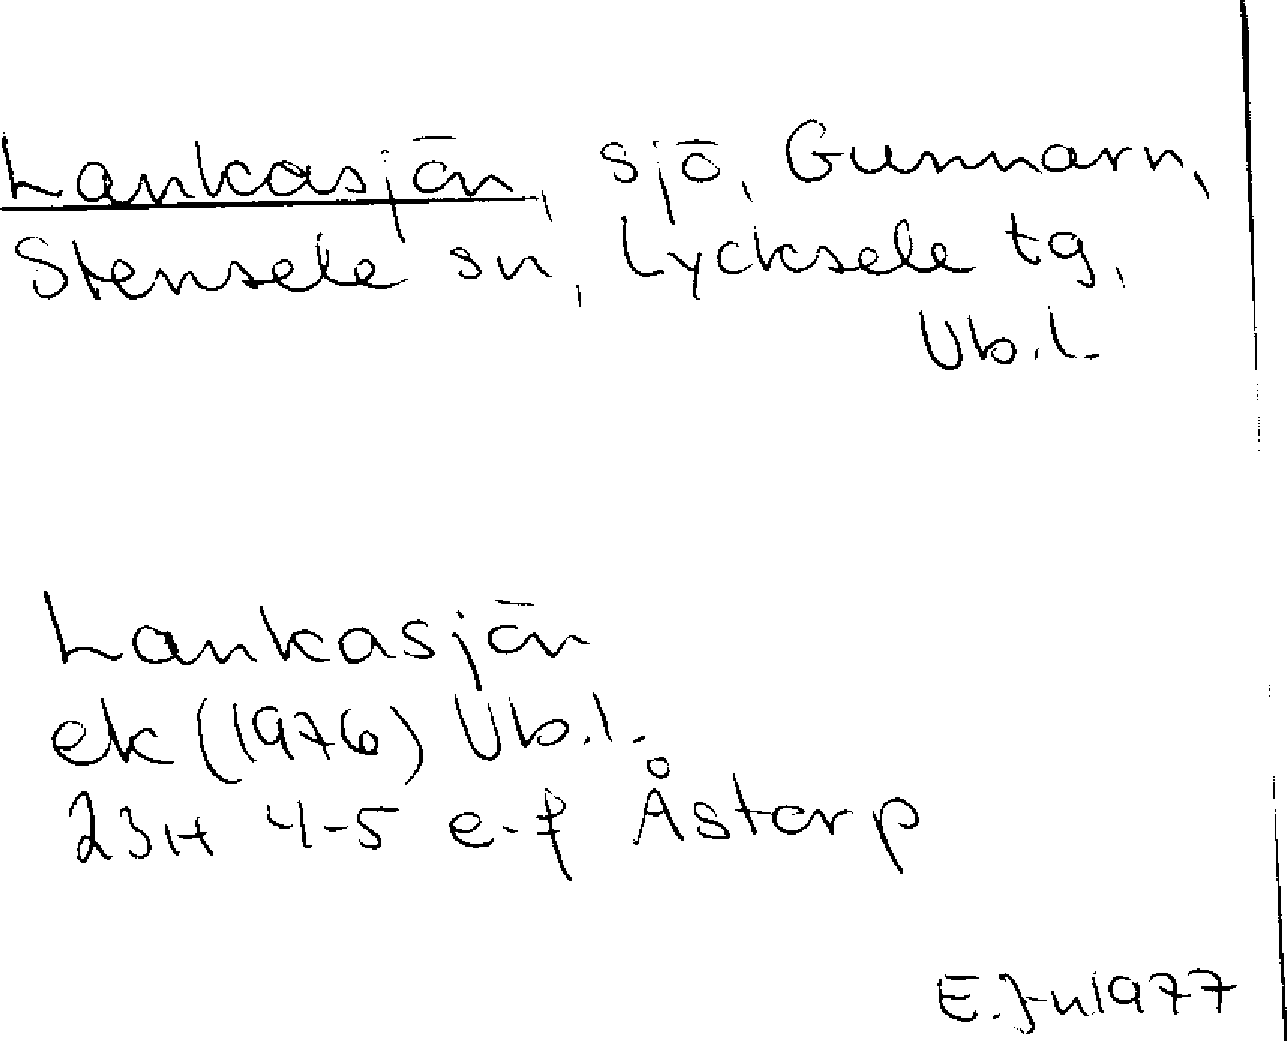 Lankasjön, sjö, Gunnarn,
Stensele sn, Lycksele tg,
Vb.l.
Lankasjön
ek (1976) Vb.l.
23H 4-5 e-f Åstorp
E. J-n 1977